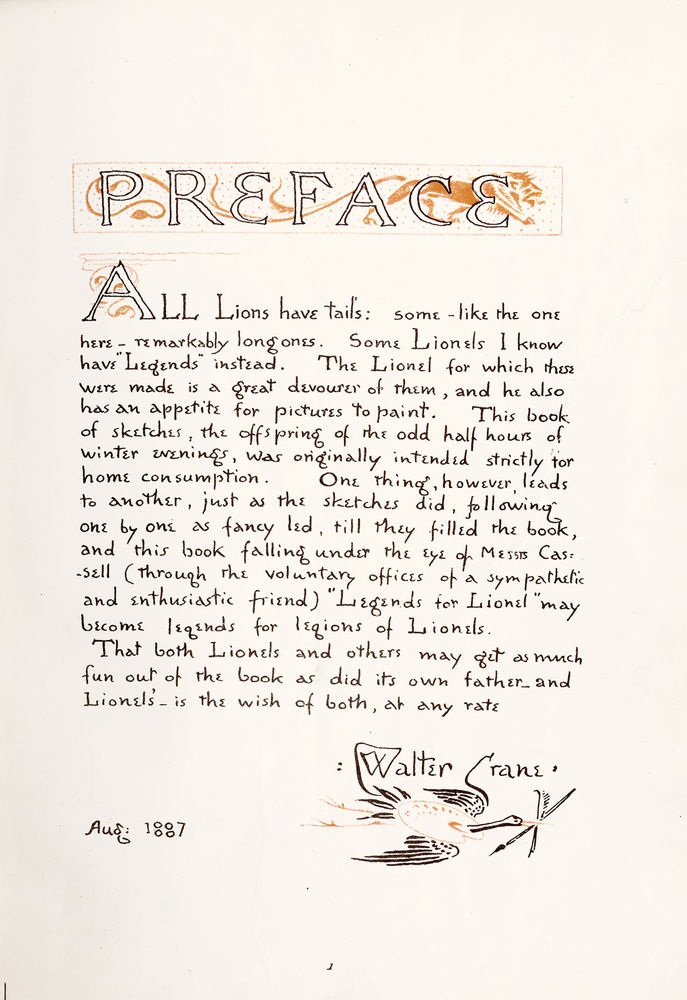 PREFACE
ALL Lions have tails: some - like the one
here - remarkably long ones. Some Lionels I know
have "Legends" instead. The Lionel for which these
were made is a great devourer of them, and he also
has an appetite for pictures to paint. This book
of sketches, the offspring of the odd half hours of
winter evenings, was originally intended strictly for
home consumption. One thing, however, leads
to another, just as the sketches did, following
one by one as fancy led, till they filled the book,
and this book falling under the eye of Messrs Cas:
-sell (through the voluntary offices of a sympathetic
and enthusiastic friend) "Legends for Lionel" may
become legends for legions of Lionels.
That both Lionels and others may get as much
fun out of the book as did its own father - and
Lionels' - is the wish of both, at any rate
: Walter Crane .
Aug: 1887
1